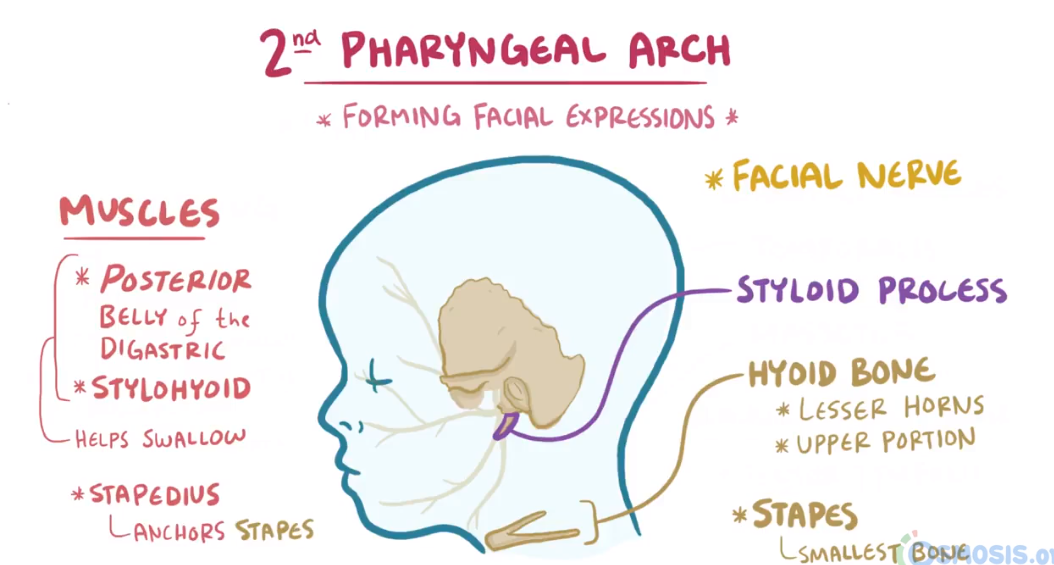 2nd PHARYNGEAL ARCH
* FORMING FACIAL EXPRESSIONS *
MUSCLES
* POSTERIOR
BELLY of the
DIGASTRIC
* STYLOHYOID
HELPS SWALLOW
* STAPEDIUS
ANCHORS STAPES
* FACIAL NERVE
STYLOID PROCESS
HYOID BONE
* LESSER HORNS
* UPPER PORTION
* STAPES
SMALLEST BONE